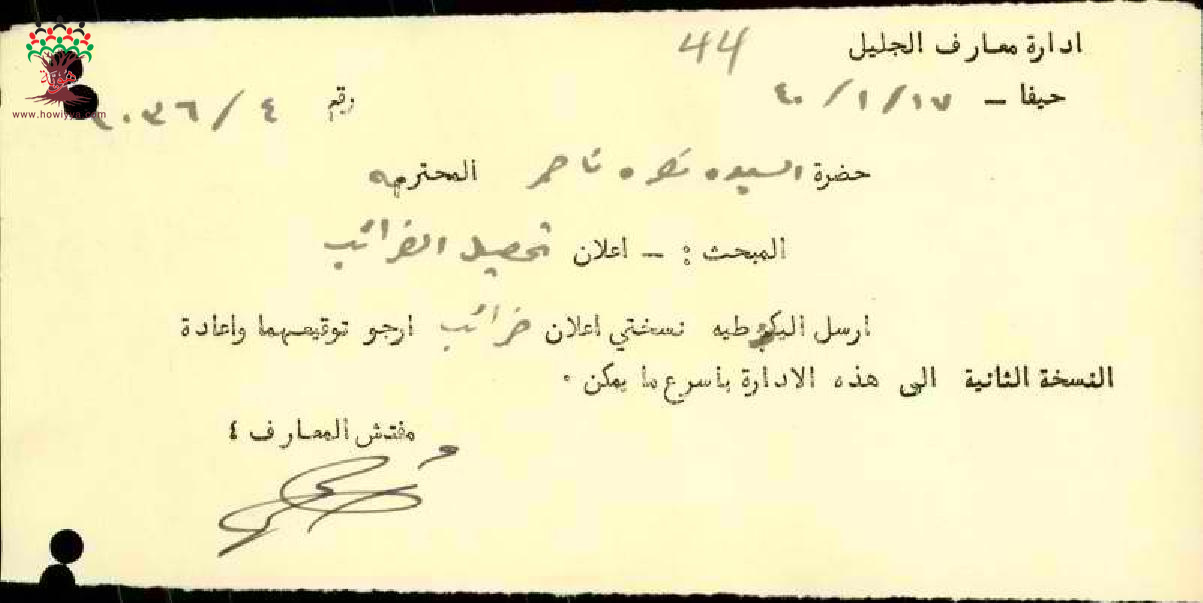 ادارة معارف الجليل
44
حيفا – ١٧/١/٤٠
رقم ٤/٢٠٣٦
هوية
www.howiyya.com
حضرة السيده ناصر المحترمه
المبحث : – اعلان تحصيل الضرائب
ارسل اليكم طيه نسختي اعلان ضرائب ارجو توقيعهما واعادة
النسخة الثانية الى هذه الادارة باسرع ما يمكن ٠
مفتش المعارف ٤